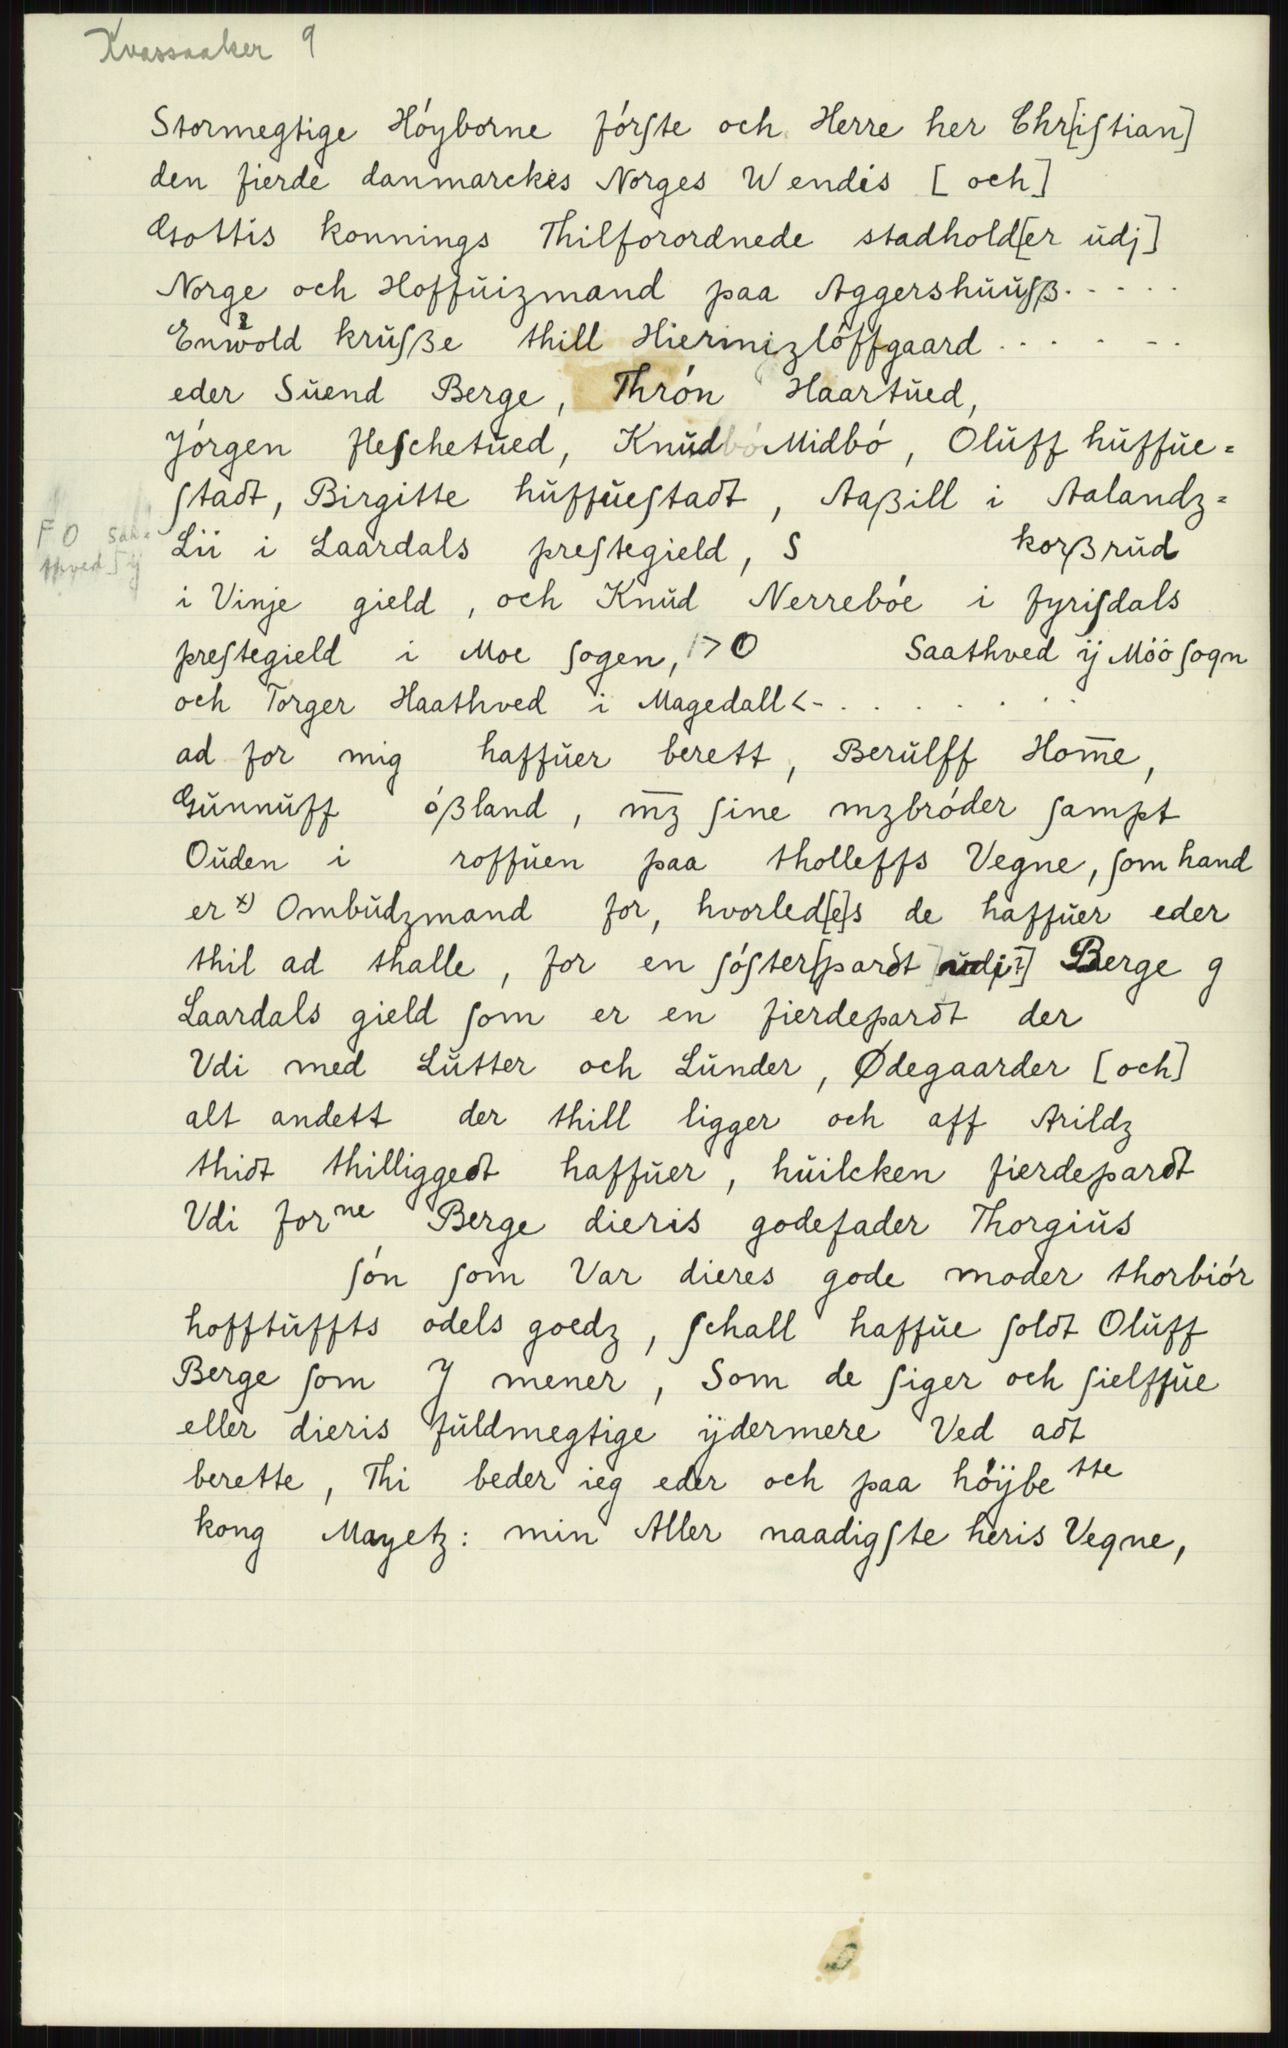 Kvassaaker 9
Stormegtige Hóyborne fórſte och Herre her Chr[iſtian]
den fierde danmarckis Norges Wendis [och]
Gottis konnings Thilforordnede stadhold[er ŭdj]
Norge och Hoffŭizmand paa Aggershŭŭſß.....
Enwold krŭſße thill Hiermizlóffgaard......
eder Sŭend Berge, Thrón Haartŭed,
Jórgen fleſchetŭed, Knŭd Midbó, Olŭff hŭffŭe=
ſtadt, Birgitte hŭffŭeſtadt, Aaßill i Aalandz=
FO Saa=
thved ij
Lii i Laardals preſtegield, S korßrŭd
i Vinje gield, och Knŭd Nerrebóe i fyriſdals
preſtegield i Moe ſogen, O Saathved ÿ Móó ſogn
och Torger Haathved i Magedall<-.......
ad for mig haffŭer berett, Berŭlff Hom̅e,
Gŭnnŭff óßland, m̅z ſine mzbróder ſampt
Oŭden i roffŭen paa tholleffs Vegne, ſom hand
er x) Ombŭdzmand for, hvorled[e]s de haffŭer eder
thil ad thalle, for en ſóſter[pardt] ŭdj?] Berge g
Laardals gield ſom er en fierdepardt der
Vdi med Lŭtter och Lŭnder, Ødegaarder [och]
alt andett der thill ligger och aff Arildz
thidt thilliggedt haffŭer, hŭilcken fierdepardt
Vdi forne Berge dieris godefader Thorgiŭs
ſón ſom Var dieres gode moder thorbiór
hofftŭffts odels goedz, ſchall haffŭe ſoldt Olŭff
Berge ſom J mener, Som de ſiger och ſielffŭe
eller dieris fŭldmegtige ÿdermere Ved adt
berette, Thi beder ieg eder och paa hóÿbe tte
kong Mayetz: min Aller naadigſte heris Vegne,